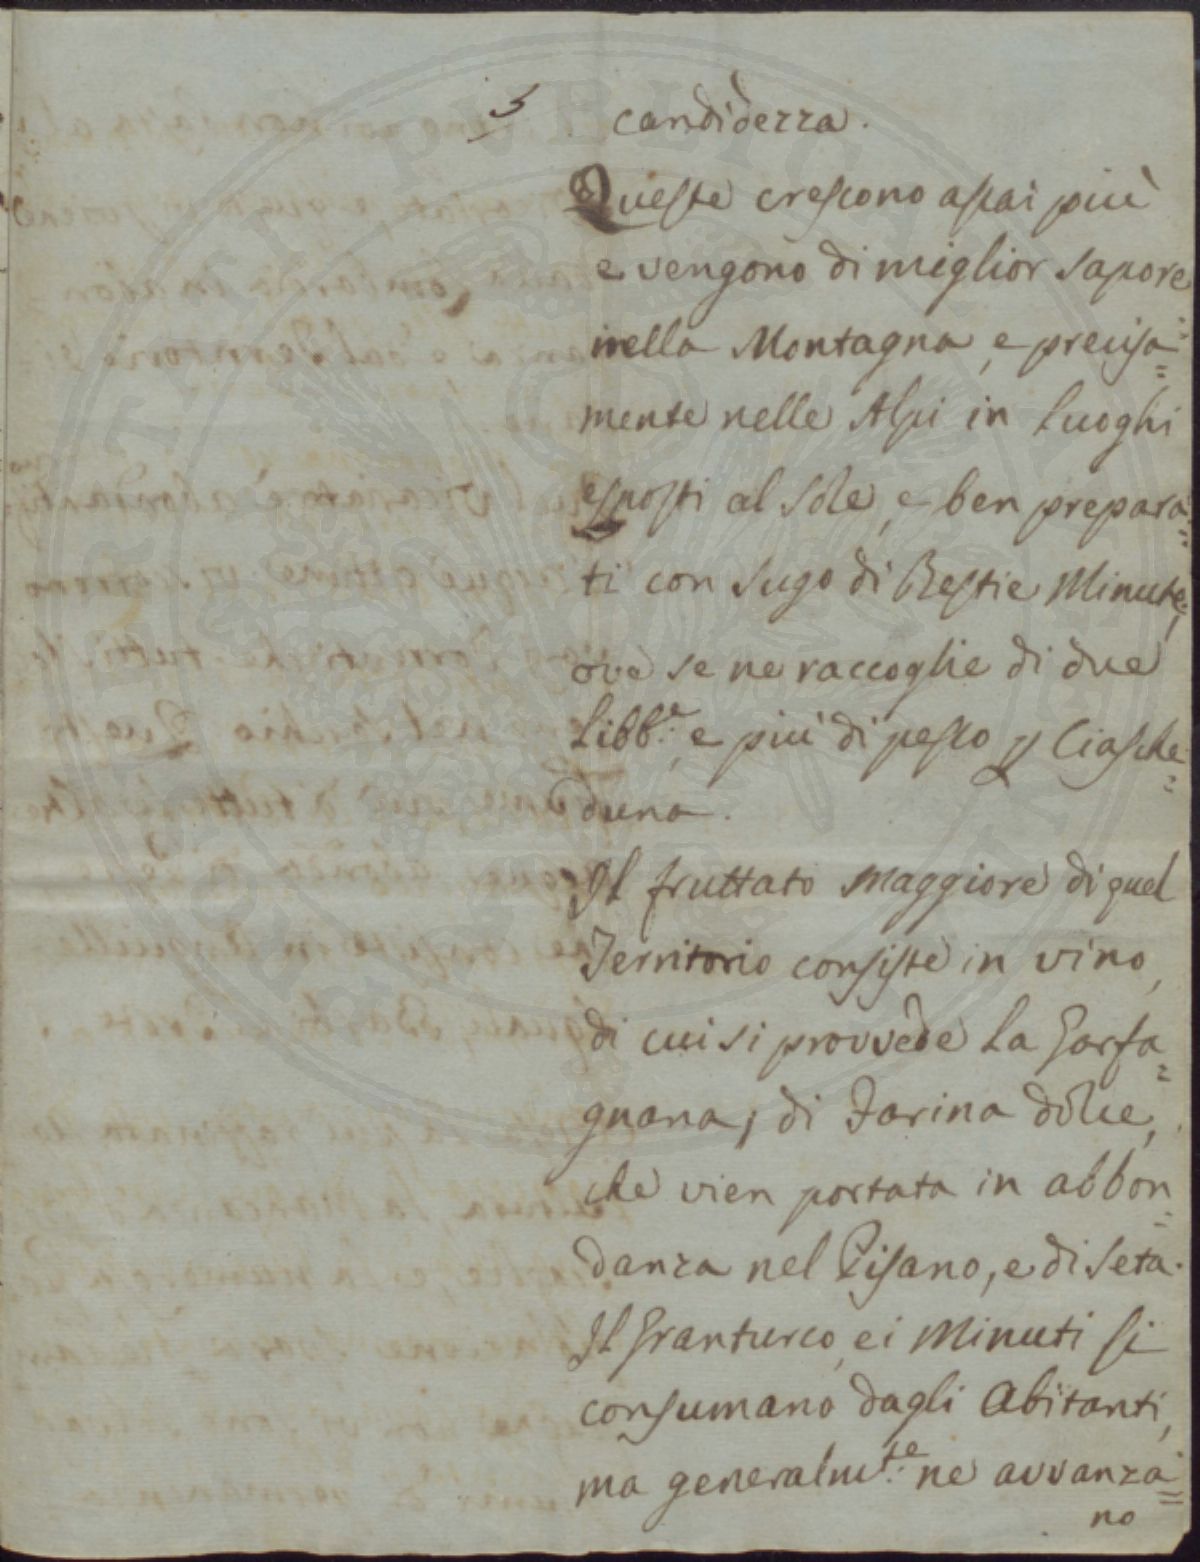 5
candidezza.
Queste crescono assai più
e vengono di miglior sapore
nella Montagna, e precisa=
mente nelle Alpi in luoghi
esposti al Sole, e ben prepara=
ti con sugo di Bestie Minute,
ove se ne raccoglie di due
Libb.e, e più di pesco p Ciasche=
duna.
Il fruttato maggiore di quel
Territorio consiste in vino,
di cui si provvede la Garfa=
gnana; di Farina dolce,
che vien portata in abbon=
danza nel Pisano, e di seta.
Il Granturco, e i Minuti si
consumano dagli Abitanti,
ma generalm.te ne avvanza=
no